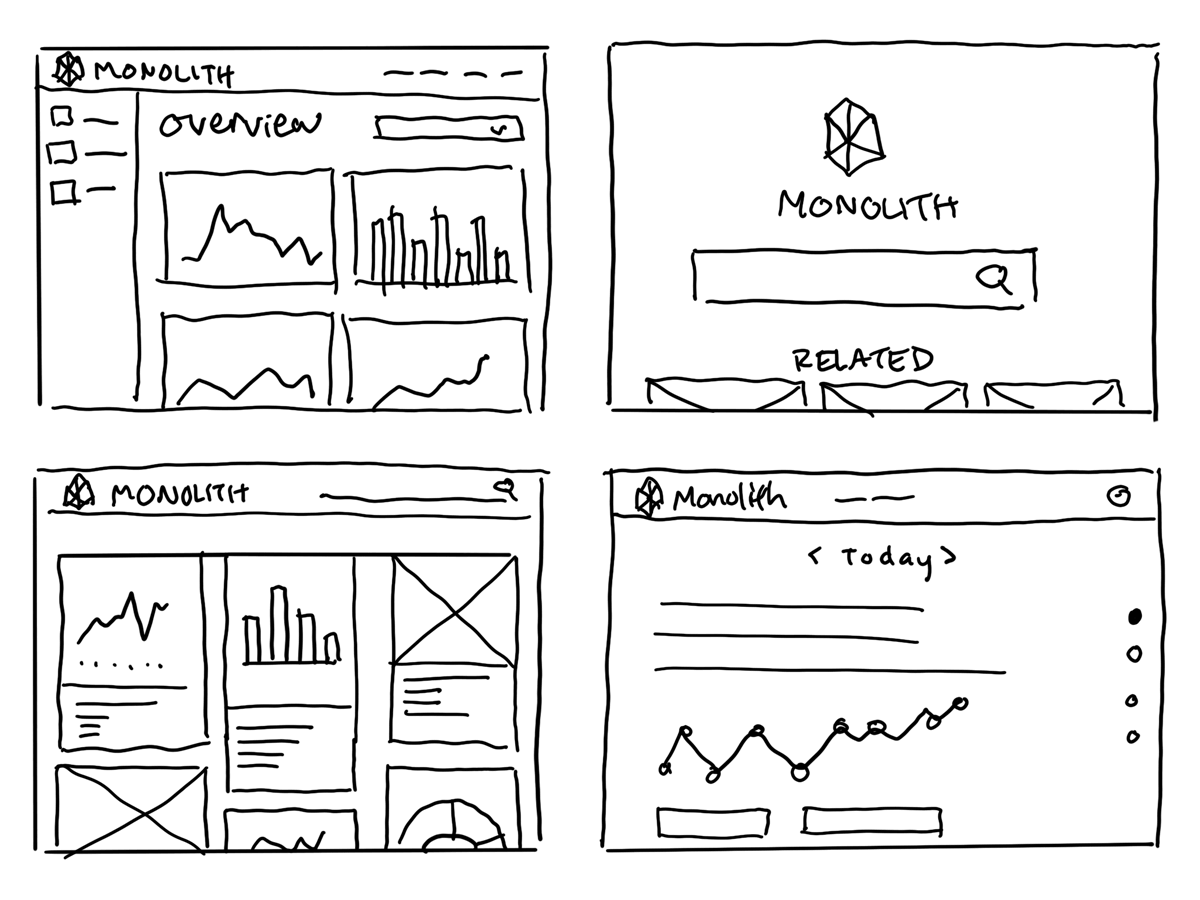 MONOLITH
Overview
MONOLITH
RELATED
MONOLITH
Monolith
< Today >